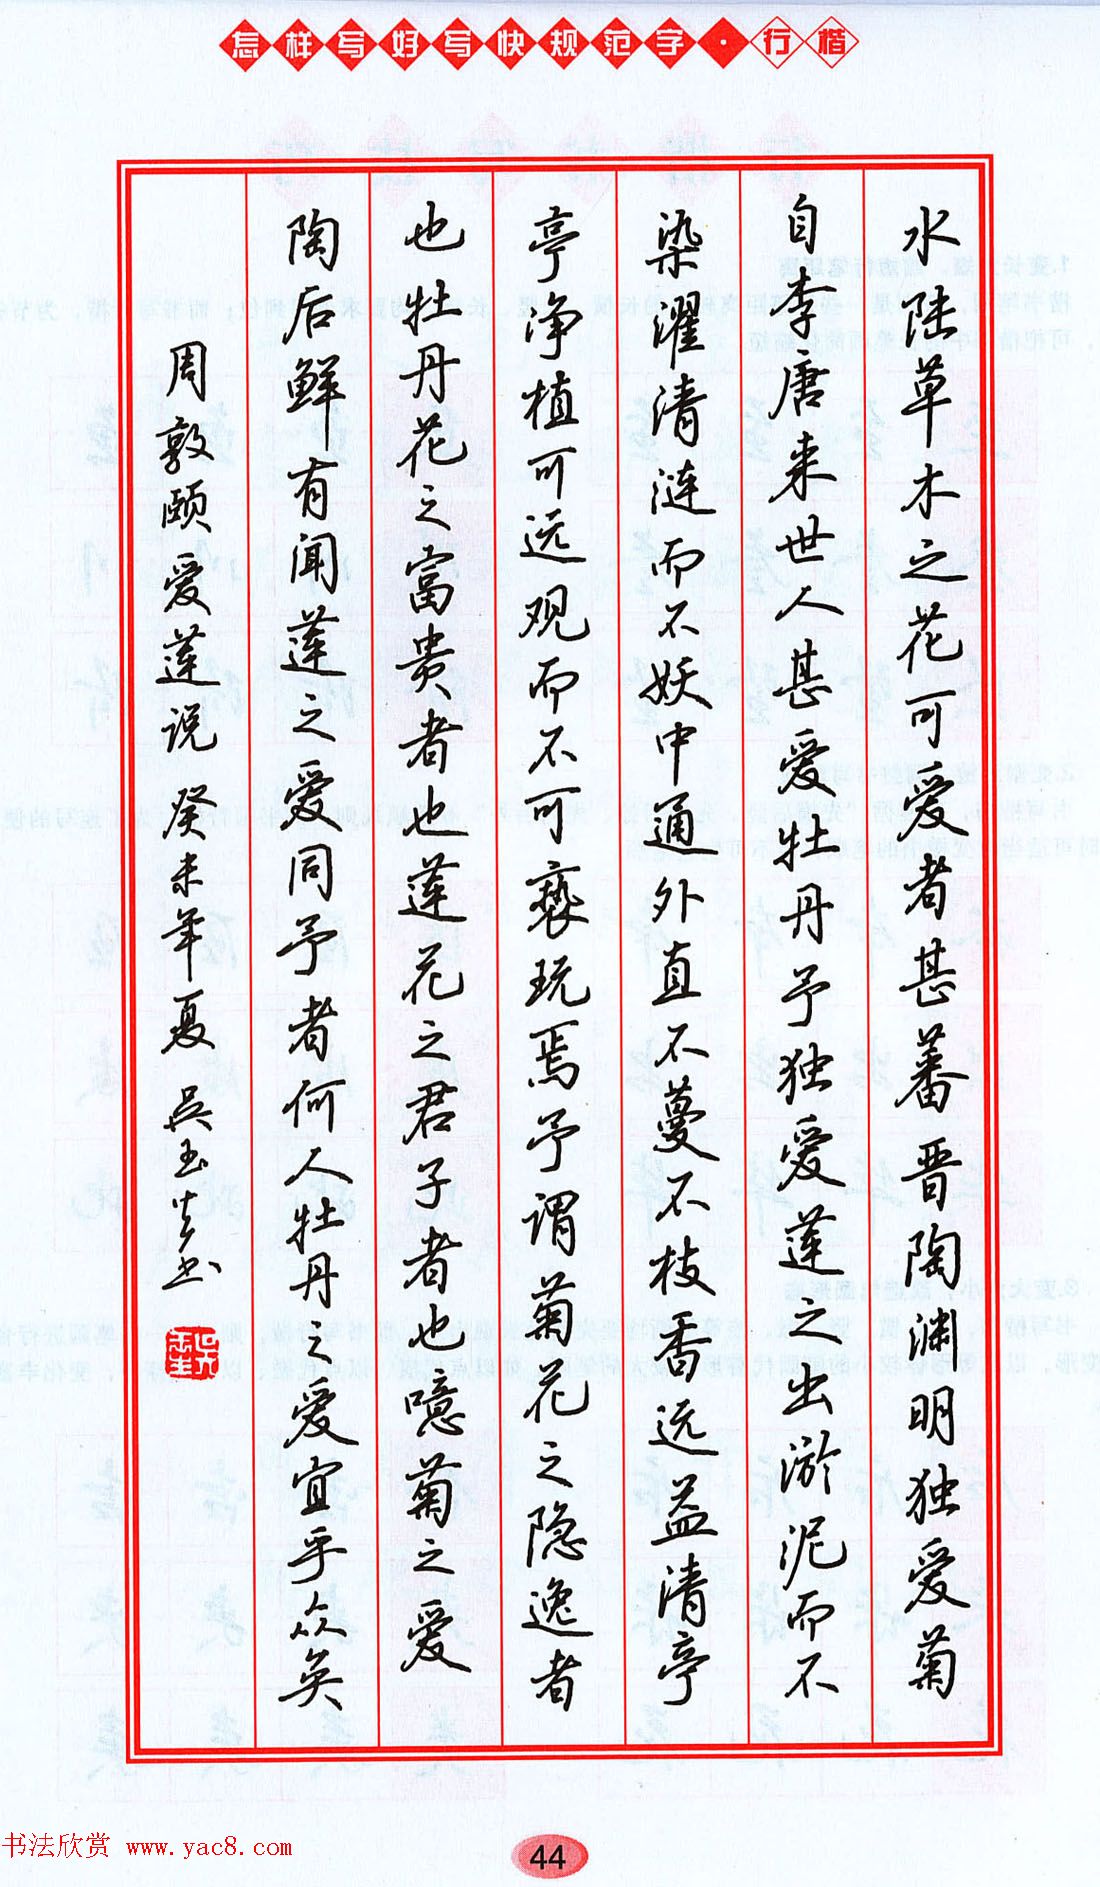 怎样写好写快规范字·行楷
水陆草木之花可爱者甚蕃晋陶渊明独爱菊
自李唐来世人甚爱牡丹予独爱莲之出淤泥而不
染濯清涟而不妖中通外直不蔓不枝香远益清亭
亭净植可远观而不可亵玩焉予谓菊花之隐逸者
也牡丹花之富贵者也莲花之君子者也噫菊之爱
陶后鲜有闻莲之爱同予者何人牡丹之爱宜乎众矣
周敦颐爱莲说 癸未年夏 吴玉生书
44
书法欣赏 www.yac8.com